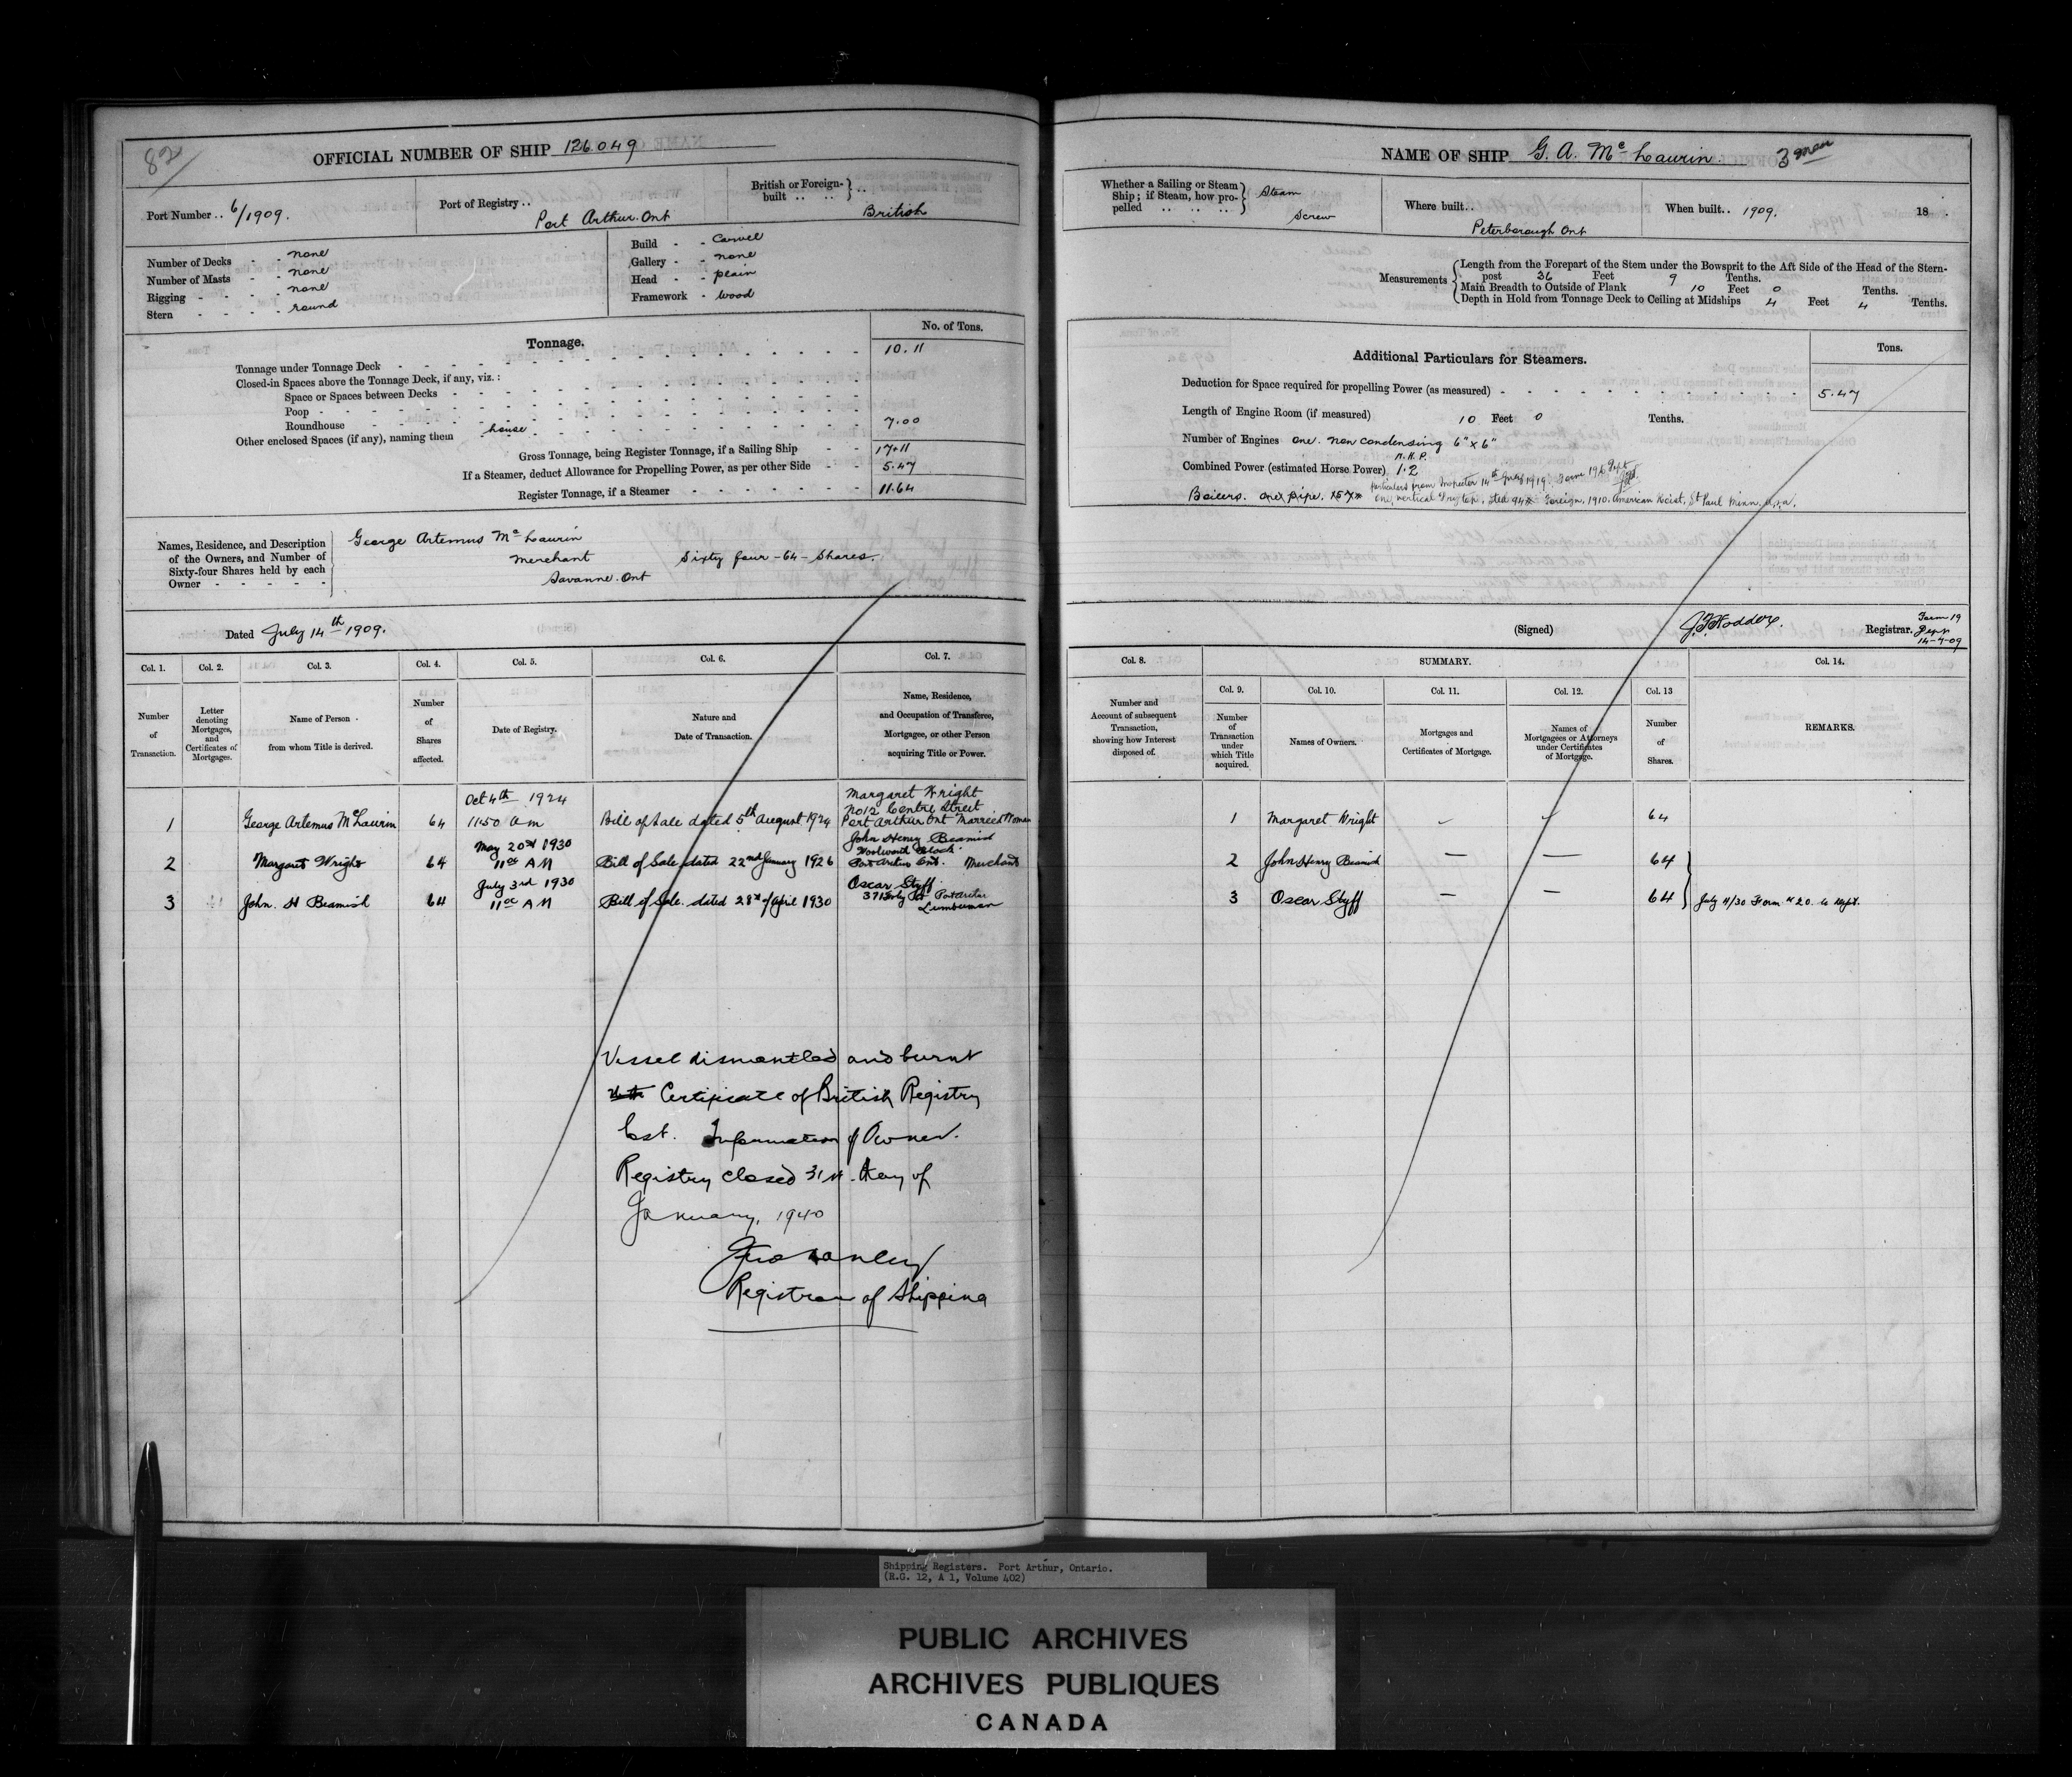 82
OFFICIAL NUMBER OF SHIP 126.049
Port Number .. 6/1909.
Port of Registry .. Port Arthur. Ont
British or Foreign-built .. .. } .. British
Number of Decks - - none
Number of Masts - - none
Rigging - - - - none
Stern - - - - round
Build - - Carvel
Gallery - - none
Head - - plain
Framework - wood
Tonnage.
No. of Tons.
Tonnage under Tonnage Deck 10.11
Closed-in Spaces above the Tonnage Deck, if any, viz.:
Space or Spaces between Decks
Poop
Roundhouse
Other enclosed Spaces (if any), naming them house 7.00
Gross Tonnage, being Register Tonnage, if a Sailing Ship 17.11
If a Steamer, deduct Allowance for Propelling Power, as per other Side 5.47
Register Tonnage, if a Steamer 11.64
Names, Residence, and Description
of the Owners, and Number of
Sixty-four Shares held by each
Owner - - - - -
George Artemus McLaurin
Merchant Sixty four -64- Shares.
Savanne. Ont
Dated July 14th 1909.
Col. 1. Col. 2. Col. 3. Col. 4. Col. 5. Col. 6. Col. 7.
Number of Transaction.
Letter denoting Mortgages, and Certificates of Mortgages.
Name of Person from whom Title is derived.
Number of Shares affected.
Date of Registry.
Nature and Date of Transaction.
Name, Residence, and Occupation of Transferee, Mortgagee, or other Person acquiring Title or Power.
1 George Artemus McLaurin 64 Oct 4th 1924 11.50 am Bill of Sale dated 5th August 1924 Margaret Wright No 12 Centre Street Port Arthur Ont Married Woman
2 Margaret Wright 64 May 20th 1930 11oc AM Bill of Sale dated 22nd January 1926 John Henry Beamish Woolworth Block Port Arthur Ont. Merchant
3 John. H Beamish 64 July 3rd 1930 11oc AM Bill of Sale. dated 28th of April 1930 Oscar Styff Port Arthur Lumberman
Vessel dismantled and burnt
Certificate of British Registry
Lost. Information of Owner.
Registry closed 31st. day of
January, 1940
Registrar of Shipping
NAME OF SHIP G. A. McLaurin. 3 men
Whether a Sailing or Steam Ship; if Steam, how propelled .. .. .. } Steam Screw
Where built .. Peterborough Ont
When built .. 1909. 18 .
Measurements
Length from the Forepart of the Stem under the Bowsprit to the Aft Side of the Head of the Stern-
post 36 Feet 9 Tenths.
Main Breadth to Outside of Plank 10 Feet 0 Tenths.
Depth in Hold from Tonnage Deck to Ceiling at Midships 4 Feet 4 Tenths.
Additional Particulars for Steamers.
Tons.
Deduction for Space required for propelling Power (as measured) 5.47
Length of Engine Room (if measured) 10 Feet 0 Tenths.
Number of Engines one. non condensing 6" x 6"
N.H.P.
Combined Power (estimated Horse Power) 1.2
particulars from Inspector 14th July 1919. Form 19 to Dept
Boilers. one pipe.
one, vertical Foreign, 1910. American Hoist, St Paul Minn. U.S.A.
(Signed) J. F. Hodder. Registrar.
Form 19
Dept
14-7-09
Col. 8. SUMMARY. Col. 14.
Col. 9. Col. 10. Col. 11. Col. 12. Col. 13
Number and Account of subsequent Transaction, showing how Interest disposed of.
Number of Transaction under which Title acquired.
Names of Owners.
Mortgages and Certificates of Mortgage.
Names of Mortgagees or Attorneys under Certificates of Mortgage.
Number of Shares.
REMARKS.
1 Margaret Wright 64
2 John Henry Beamish — — 64
3 Oscar Styff — — 64 July 4/30 Form # 20. to Dept.
Shipping Registers. Port Arthur, Ontario.
(R.G. 12, A 1, Volume 402)
PUBLIC ARCHIVES
ARCHIVES PUBLIQUES
CANADA